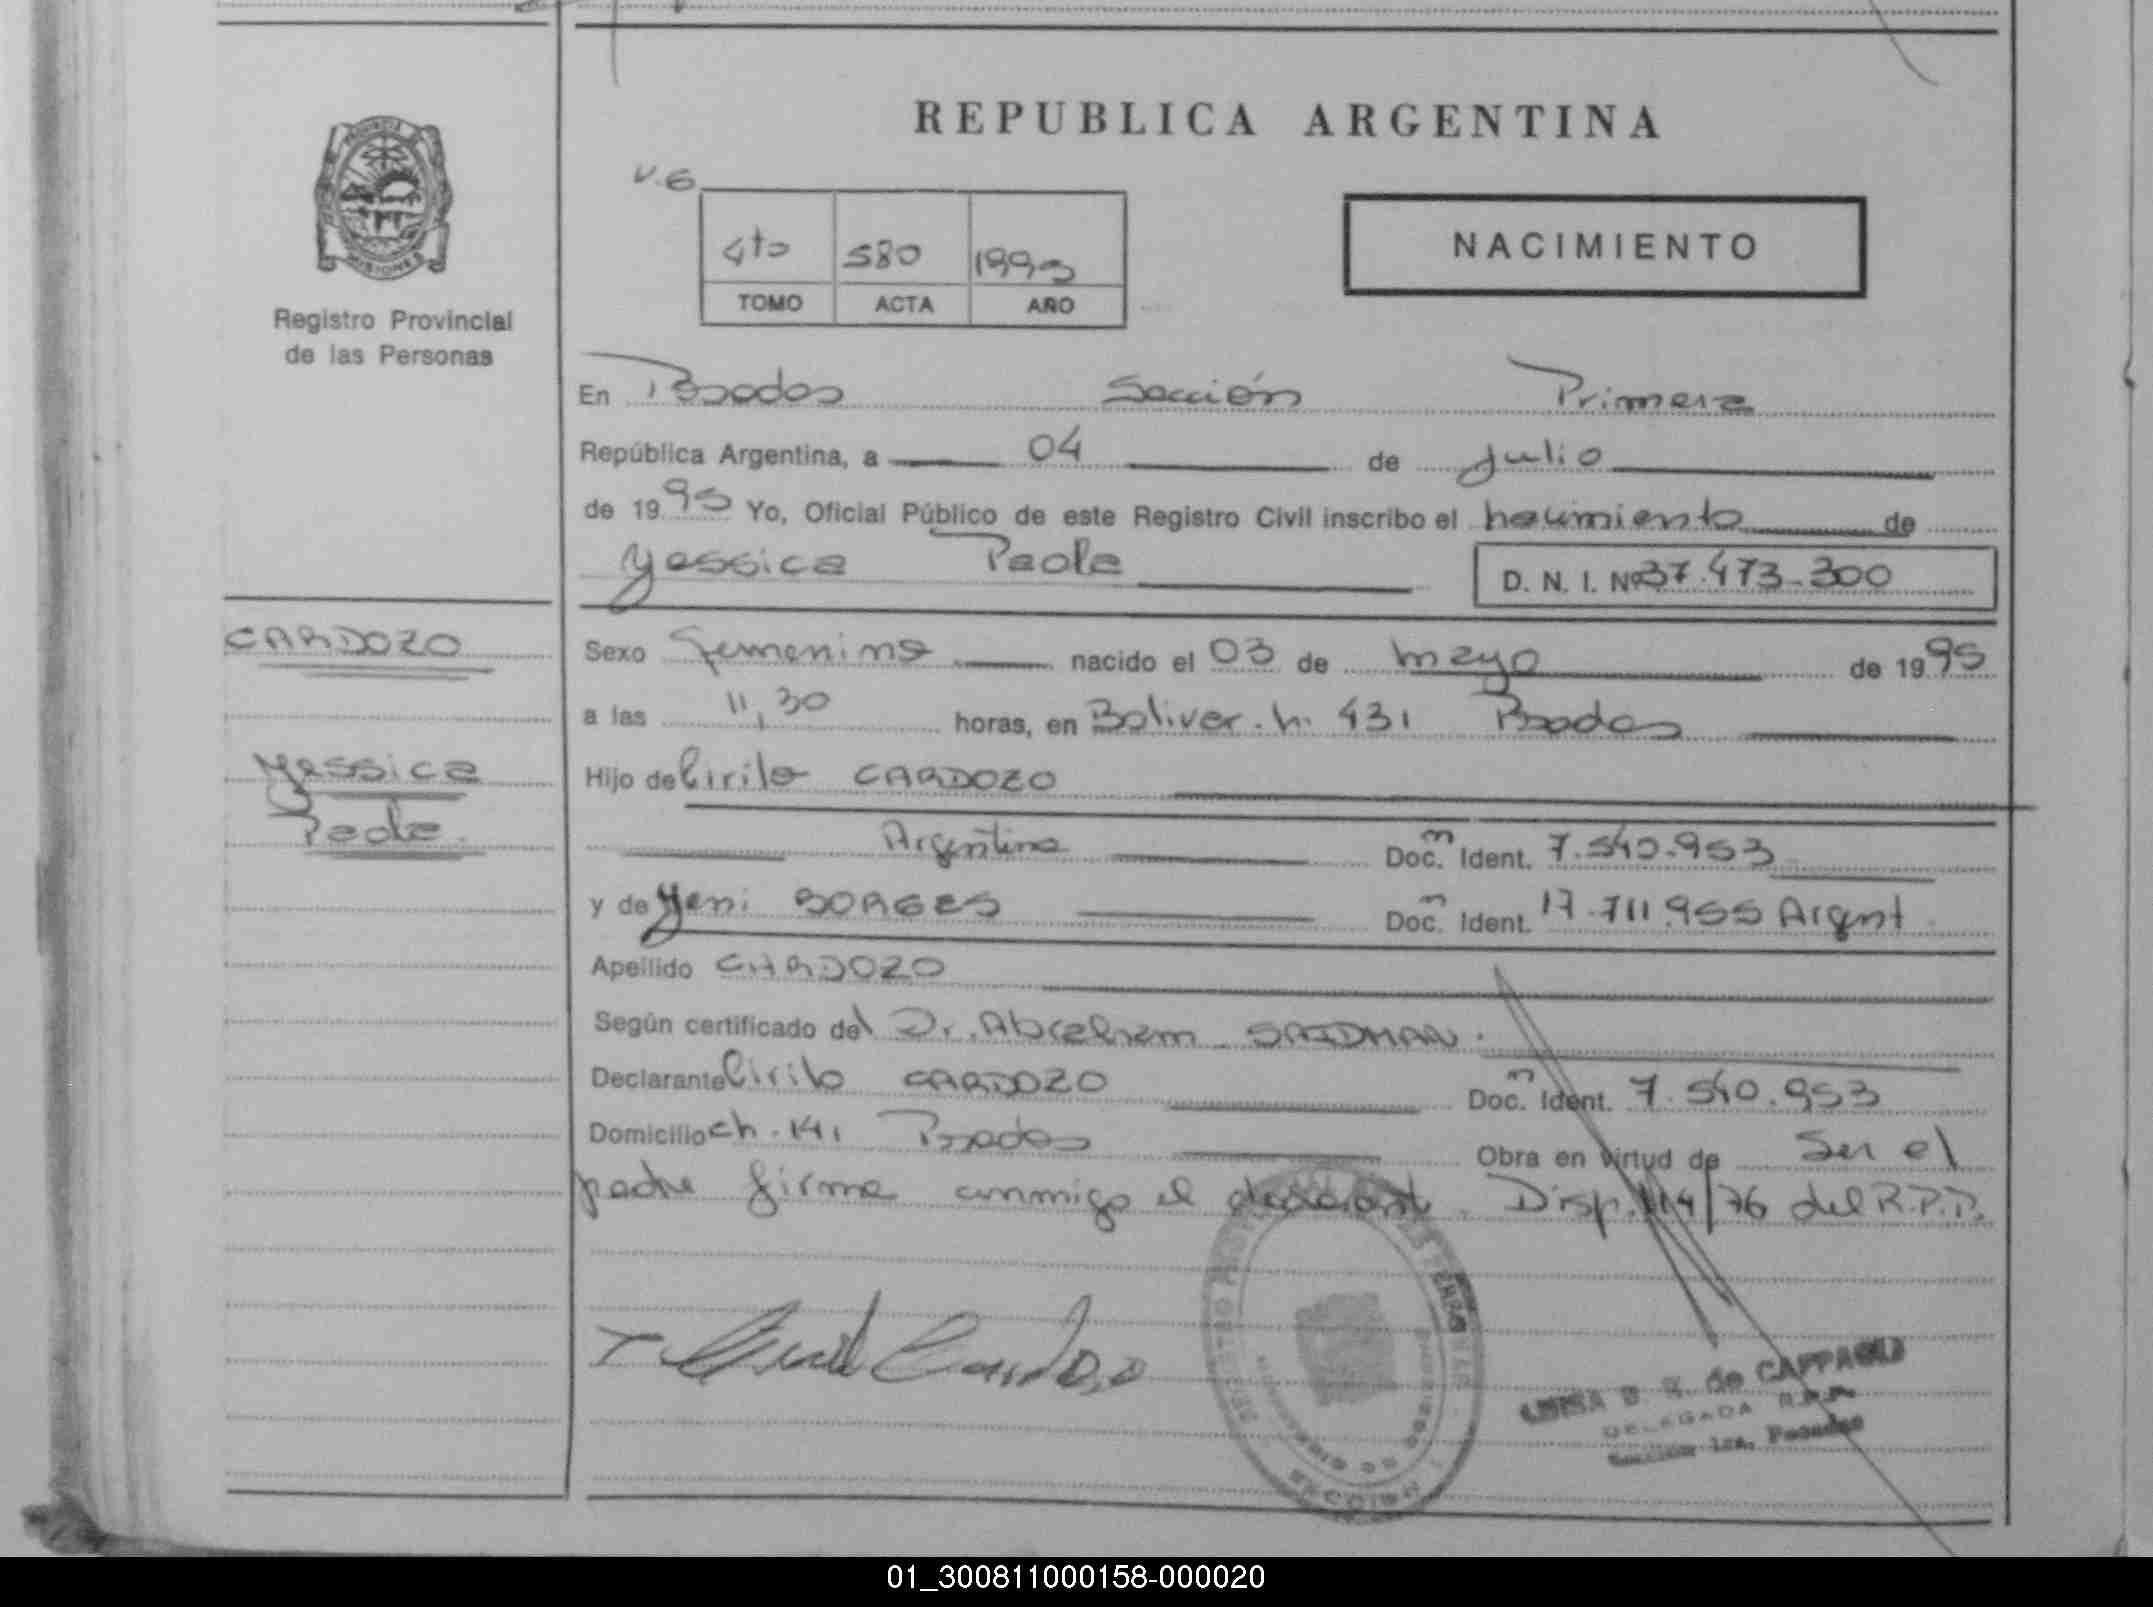 REPUBLICA ARGENTINA
V.6
4to 580 1995
TOMO ACTA AÑO
NACIMIENTO
PROVINCIA
MISIONES
Registro Provincial
de las Personas
En Posadas Sección Primera
República Argentina, a 04 de Julio
de 1995 Yo, Oficial Público de este Registro Civil inscribo el nacimiento de
Yessica Paola D. N. I. Nº 37.473.300
CARDOZO
Yessica
Paola
Sexo Femenino nacido el 03 de mayo de 1995
a las 11,30 horas, en Bolivar. n. 431 Posadas
Hijo de Cirilo CARDOZO
Argentino Doc. m Ident. 7.540.953
y de Yeni BORGES Doc. m Ident. 17.711.955 Argent
Apellido CARDOZO
Según certificado del Dr. Abraham SAIDMAN.
Declarante Cirilo CARDOZO Doc. m Ident. 7.540.953
Domicilio ch. 141 Posadas Obra en virtud de Ser el
padre firma conmigo el declarant. Disp. 114/76 del R.P.P.
Cardozo
LUISA de CAPPA
DELEGADA R.P.P.
Sección 1ra. Posadas
SECCION
01_300811000158-000020